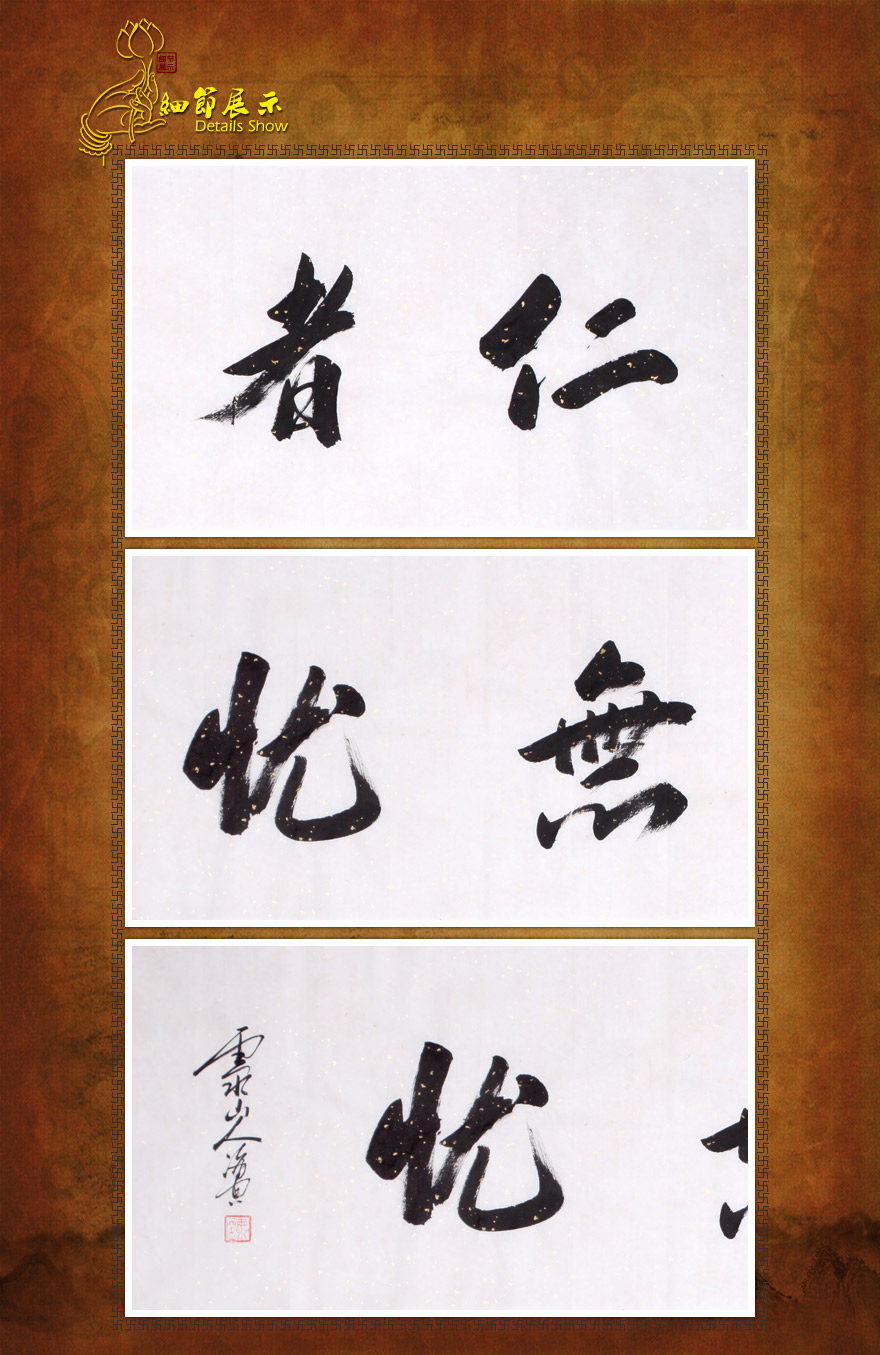 細節展示
Details Show
仁者
無忧
忧
山人